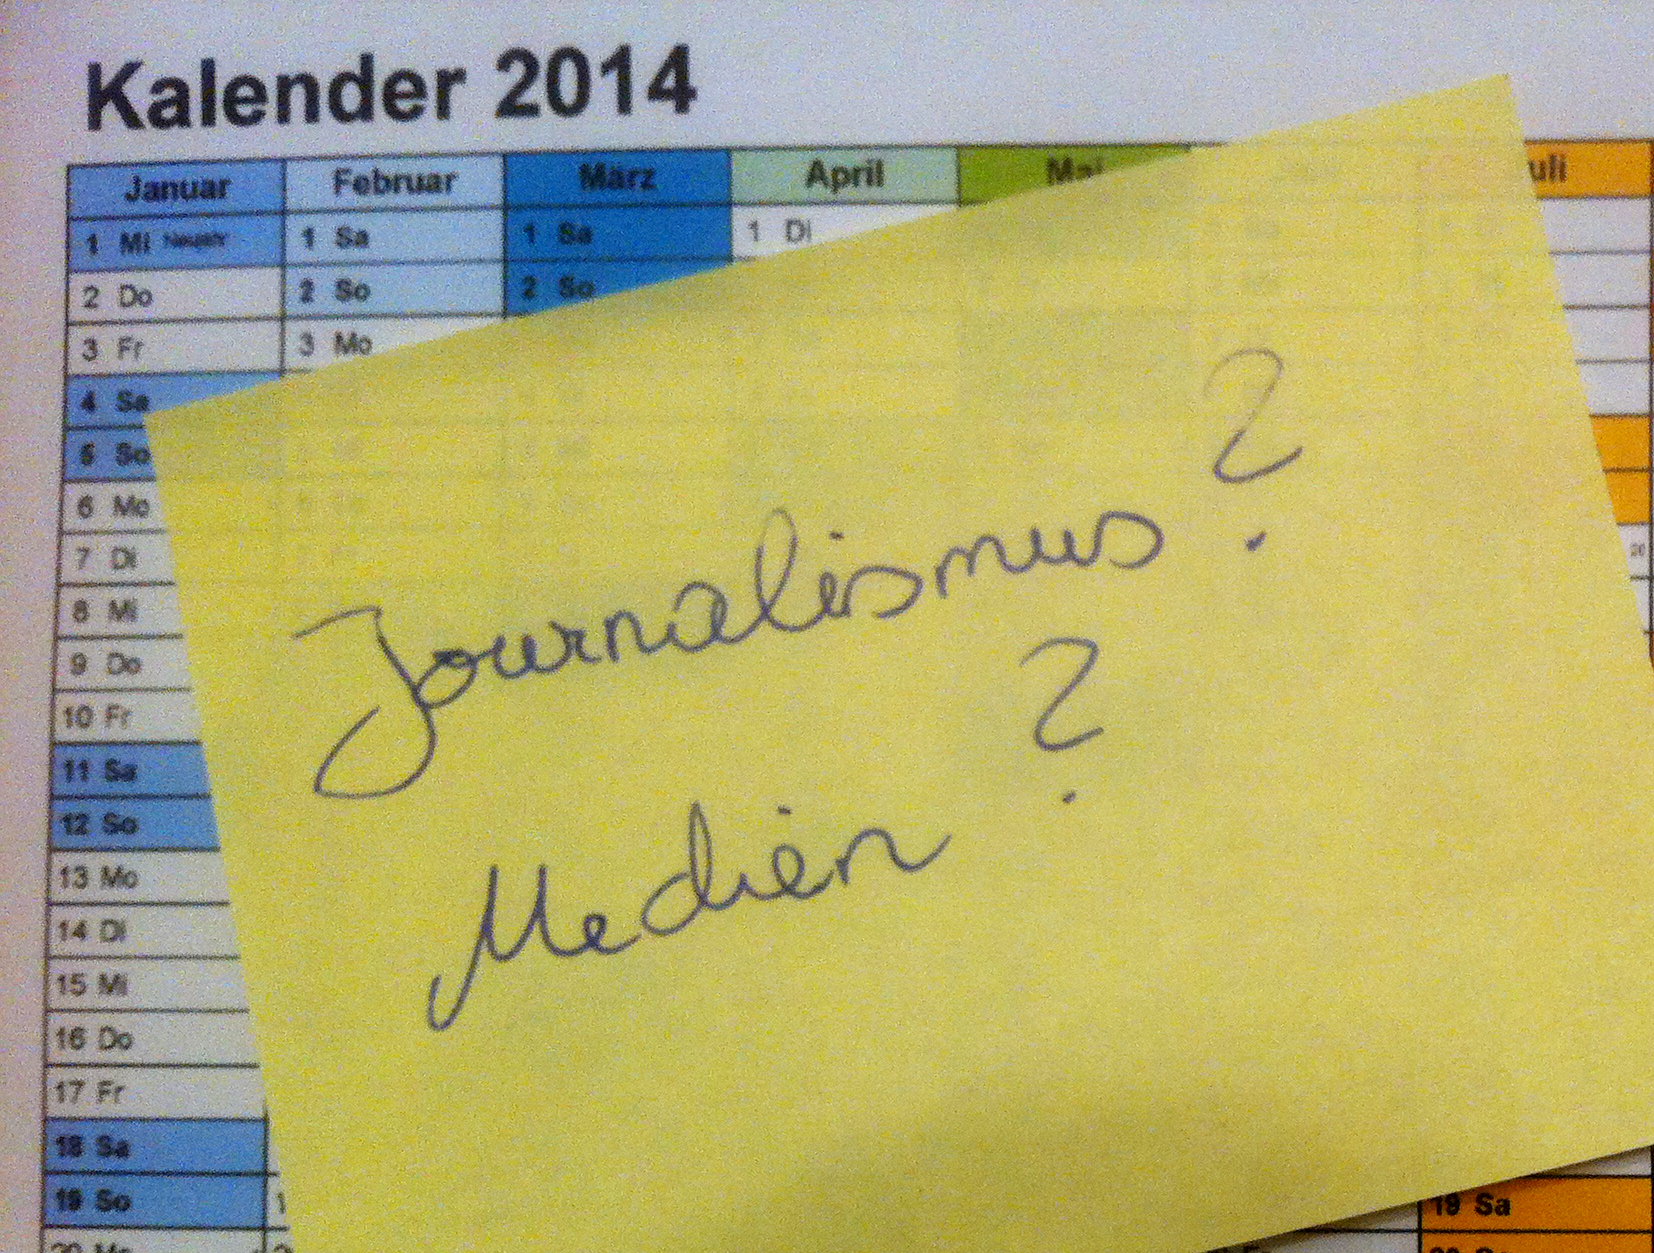 Kalender 2014
Januar Februar März April Mai uli
1 Mi Neujahr 1 Sa 1 Sa 1 Di
2 Do 2 So 2 So
3 Fr 3 Mo
4 Sa
5 So
6 Mo
7 Di
8 Mi
9 Do
10 Fr
11 Sa
12 So
13 Mo
14 Di
15 Mi
16 Do
17 Fr
18 Sa
19 So 19 Sa
Journalismus?
Medien?